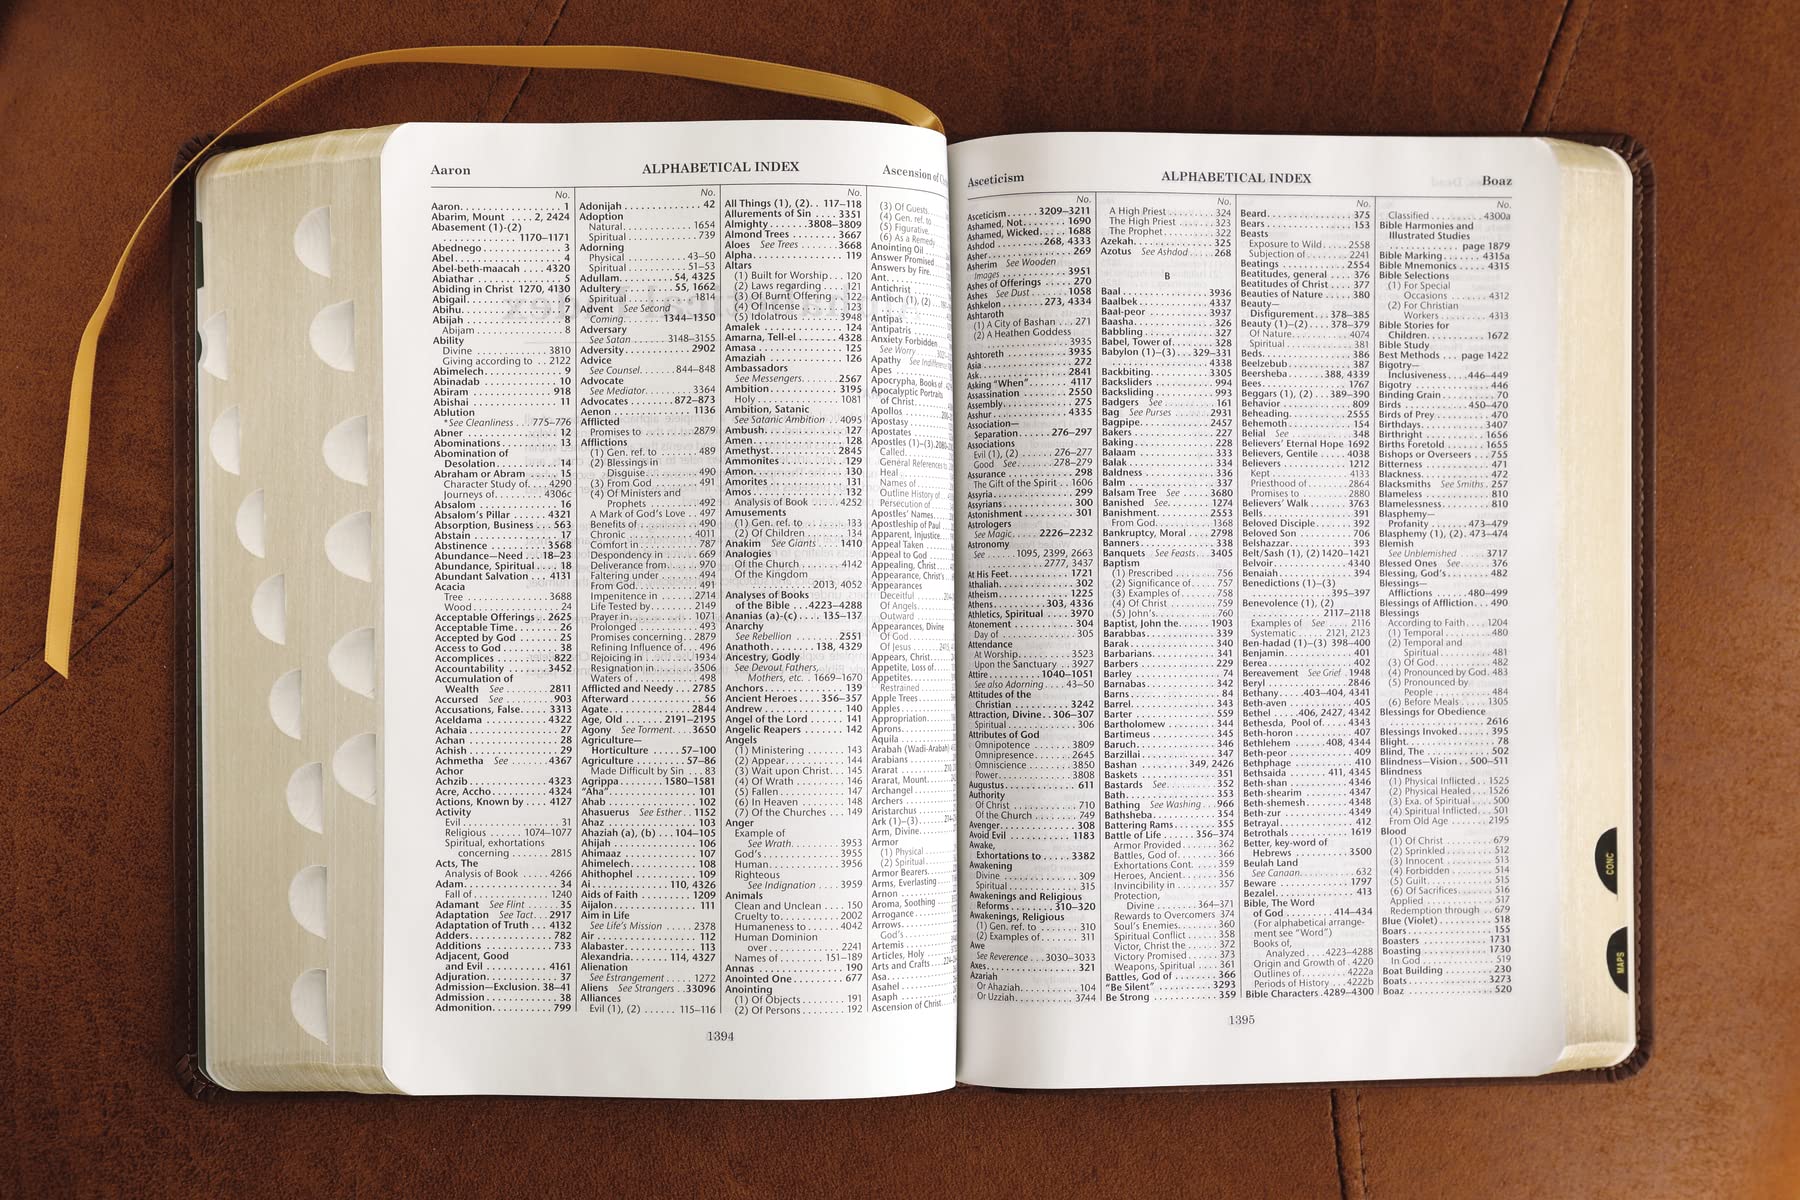 Aaron ALPHABETICAL INDEX Ascension of
No.
Aaron 1
Abarim, Mount 2, 2424
Abasement (1)-(2)
1170–1171
Abednego 3
Abel 4
Abel-beth-maacah 4320
Abiathar 5
Abiding in Christ 1270, 4130
Abigail 6
Abihu 7
Abijah 8
Abijam 8
Ability
Divine 3810
Giving according to 2122
Abimelech 9
Abinadab 10
Abiram 918
Abishai 11
Ablution
*See Cleanliness 775–776
Abner 12
Abominations 13
Abomination of
Desolation 14
Abraham or Abram 15
Character Study of 4290
Journeys of 4306c
Absalom 16
Absalom's Pillar 4321
Absorption, Business 563
Abstain 17
Abstinence 3568
Abundance—Need 18–23
Abundance, Spiritual 18
Abundant Salvation 4131
Acacia
Tree 3688
Wood 24
Acceptable Offerings 2625
Acceptable Time 26
Accepted by God 25
Access to God 38
Accomplices 822
Accountability 3452
Accumulation of
Wealth See 2811
Accursed See 903
Accusations, False 3313
Aceldama 4322
Achaia 27
Achan 28
Achish 29
Achmetha See 4367
Achor
Achzib 4323
Acre, Accho 4324
Actions, Known by 4127
Activity
Evil 31
Religious 1074–1077
Spiritual, exhortations
concerning 2815
Acts, The
Analysis of Book 4266
Adam 34
Fall of 1240
Adamant See Flint 35
Adaptation See Tact 2917
Adaptation of Truth 4132
Adders 782
Additions 733
Adjacent, Good
and Evil 4161
Adjuration 37
Admission—Exclusion 38–41
Admission 38
Admonition 799
No.
Adonijah 42
Adoption
Natural 1654
Spiritual 739
Adorning
Physical 43–50
Spiritual 51–53
Adullam 54, 4325
Adultery 55, 1662
Spiritual 1814
Advent See Second
Coming 1344–1350
Adversary
See Satan 3148–3155
Adversity 2902
Advice
See Counsel 844–848
Advocate
See Mediator 3364
Advocates 872–873
Aenon 1136
Afflicted
Promises to 2879
Afflictions
(1) Gen. ref. to 489
(2) Blessings in
Disguise 490
(3) From God 491
(4) Of Ministers and
Prophets 492
A Mark of God's Love 497
Benefits of 490
Chronic 4011
Comfort in 787
Despondency in 669
Deliverance from 970
Faltering under 494
From God 491
Impenitence in 2714
Life Tested by 2149
Prayer in 1071
Prolonged 493
Promises concerning 2879
Refining Influence of 496
Rejoicing in 1934
Resignation in 3506
Waters of 498
Afflicted and Needy 2785
Afterward 56
Agate 2844
Age, Old 2191–2195
Agony See Torment 3650
Agriculture—
Horticulture 57–100
Agriculture 57–86
Made Difficult by Sin 83
Agrippa 1580–1581
"Aha" 101
Ahab 102
Ahasuerus See Esther 1152
Ahaz 103
Ahaziah (a), (b) 104–105
Ahijah 106
Ahimaaz 107
Ahimelech 108
Ahithophel 109
Ai 110, 4326
Aids of Faith 1209
Aijalon 111
Aim in Life
See Life's Mission 2378
Air 112
Alabaster 113
Alexandria 114, 4327
Alienation
See Estrangement 1272
Aliens See Strangers 33096
Alliances
Evil (1), (2) 115–116
No.
All Things (1), (2) 117–118
Allurements of Sin 3351
Almighty 3808–3809
Almond Trees 3667
Aloes See Trees 3668
Alpha 119
Altars
(1) Built for Worship 120
(2) Laws regarding 121
(3) Of Burnt Offering 122
(4) Of Incense 123
(5) Idolatrous 3948
Amalek 124
Amarna, Tell-el 4328
Amasa 125
Amaziah 126
Ambassadors
See Messengers 2567
Ambition 3195
Holy 1081
Ambition, Satanic
See Satanic Ambition 4095
Ambush 127
Amen 128
Amethyst 2845
Ammonites 129
Amon 130
Amorites 131
Amos 132
Analysis of Book 4252
Amusements
(1) Gen. ref. to 133
(2) Of Children 134
Anakim See Giants 1410
Analogies
Of the Church 4142
Of the Kingdom
2013, 4052
Analyses of Books
of the Bible 4223–4288
Ananias (a)-(c) 135–137
Anarchy
See Rebellion 2551
Anathoth 138, 4329
Ancestry, Godly
See Devout Fathers,
Mothers, etc. 1669–1670
Anchors 139
Ancient Heroes 356–357
Andrew 140
Angel of the Lord 141
Angelic Reapers 142
Angels
(1) Ministering 143
(2) Appear 144
(3) Wait upon Christ 145
(4) Of Wrath 146
(5) Fallen 147
(6) In Heaven 148
(7) Of the Churches 149
Anger
Example of
See Wrath 3953
God's 3955
Human 3956
Righteous
See Indignation 3959
Animals
Clean and Unclean 150
Cruelty to 2002
Humaneness to 4042
Human Dominion
over 2241
Names of 151–189
Annas 190
Anointed One 677
Anointing
(1) Of Objects 191
(2) Of Persons 192
(3) Of Guests
(4) Gen. ref. to
(5) Figurative
(6) As a Remedy
Anointing Oil
Answer Promised
Answers by Fire
Ant
Antichrist
Antioch (1), (2)
Antipas
Antipatris
Anxiety Forbidden
See Worry
Apathy See
Apes
Apocrypha, Books of
Apocalyptic Portraits
of Christ
Apollos
Apostasy
Apostates
Apostles (1)–(3)
Called
General References to
Heal
Names of
Outline History of
Persecution of
Apostles' Names
Apostleship of Paul
Apparent, Injustice
Appeal Taken
Appeal to God
Appealing, Christ
Appearance, Christ's
Appearances
Deceitful
Of Angels
Outward
Appearances, Divine
Of God
Of Jesus
Appears, Christ
Appetite, Loss of
Appetites
Restrained
Apple Trees
Apples
Appropriation
Aprons
Aquila
Arabah (Wadi-Arabah)
Arabians
Ararat
Ararat, Mount
Archangel
Archers
Aristarchus
Ark (1)–(3)
Arm, Divine
Armor
(1) Physical
(2) Spiritual
Armor Bearers
Arms, Everlasting
Arnon
Aroma, Soothing
Arrogance
Arrows
God's
Artemis
Articles, Holy
Arts and Crafts
Asa
Asahel
Asaph
Ascension of Christ
1394
Asceticism ALPHABETICAL INDEX Boaz
No.
Asceticism 3209–3211
Ashamed, Not 1690
Ashamed, Wicked 1688
Ashdod 268, 4333
Asher 269
Asherim See Wooden
Images 3951
Ashes of Offerings 270
Ashes See Dust 1058
Ashkelon 273, 4334
Ashtaroth
(1) A City of Bashan 271
(2) A Heathen Goddess
3935
Ashtoreth 3935
Asia 272
Ask 2841
Asking "When" 4117
Assassination 2550
Assembly 275
Asshur 4335
Association—
Separation 276–297
Associations
Evil (1), (2) 276–277
Good See 278–279
Assurance 298
The Gift of the Spirit 1606
Assyria 299
Assyrians 300
Astonishment 301
Astrologers
See Magic 2226–2232
Astronomy
See 1095, 2399, 2663
2777, 3437
At His Feet 1721
Athaliah 302
Atheism 1225
Athens 303, 4336
Athletics, Spiritual 3970
Atonement 304
Day of 305
Attendance
At Worship 3523
Upon the Sanctuary 3927
Attire 1040–1051
See also Adorning 43–50
Attitudes of the
Christian 3242
Attraction, Divine 306–307
Spiritual 306
Attributes of God
Omnipotence 3809
Omnipresence 2645
Omniscience 3850
Power 3808
Augustus 611
Authority
Of Christ 710
Of the Church 749
Avenger 308
Avoid Evil 1183
Awake,
Exhortations to 3382
Awakening
Divine 309
Spiritual 315
Awakenings and Religious
Reforms 310–320
Awakenings, Religious
(1) Gen. ref. to 310
(2) Examples of 311
Awe
See Reverence 3030–3033
Axes 321
Azariah
Or Ahaziah 104
Or Uzziah 3744
No.
A High Priest 324
The High Priest 323
The Prophet 322
Azekah 325
Azotus See Ashdod 268
B
Baal 3936
Baalbek 4337
Baal-peor 3937
Baasha 326
Babbling 327
Babel, Tower of 328
Babylon (1)–(3) 329–331
4338
Backbiting 3305
Backsliders 994
Backsliding 993
Badgers See 161
Bag See Purses 2931
Bagpipe 2457
Bakers 227
Baking 228
Balaam 333
Balak 334
Baldness 336
Balm 337
Balsam Tree See 3680
Banished See 1274
Banishment 2553
From God 1368
Bankruptcy, Moral 2798
Banners 338
Banquets See Feasts 3405
Baptism
(1) Prescribed 756
(2) Significance of 757
(3) Examples of 758
(4) Of Christ 759
(5) John's 760
Baptist, John the 1903
Barabbas 339
Barak 340
Barbarians 341
Barbers 229
Barley 74
Barnabas 342
Barns 84
Barrel 343
Barter 559
Bartholomew 344
Bartimeus 345
Baruch 346
Barzillai 347
Bashan 349, 2426
Baskets 351
Bastards See 352
Bath 353
Bathing See Washing 966
Bathsheba 354
Battering Rams 355
Battle of Life 356–374
Armor Provided 362
Battles, God of 366
Exhortations Cont. 359
Heroes, Ancient 356
Invincibility in 357
Protection,
Divine 364–371
Rewards to Overcomers 374
Soul's Enemies 360
Spiritual Conflict 358
Victor, Christ the 372
Victory Promised 373
Weapons, Spiritual 361
Battles, God of 366
"Be Silent" 3293
Be Strong 359
No.
Beard 375
Bears 153
Beasts
Exposure to Wild 2558
Subjection of 2241
Beatings 2554
Beatitudes, general 376
Beatitudes of Christ 377
Beauties of Nature 380
Beauty—
Disfigurement 378–385
Beauty (1)–(2) 378–379
Of Nature 4074
Spiritual 381
Beds 386
Beelzebub 387
Beersheba 388, 4339
Bees 1767
Beggars (1), (2) 389–390
Behavior 809
Beheading 2555
Behemoth 154
Belial See 348
Believers' Eternal Hope 1692
Believers, Gentile 4038
Believers 1212
Kept 4133
Priesthood of 2864
Promises to 2880
Believers' Walk 3763
Bells 391
Beloved Disciple 392
Beloved Son 706
Belshazzar 393
Belt/Sash (1), (2) 1420–1421
Belvoir 4340
Benaiah 394
Benedictions (1)–(3)
395–397
Benevolence (1), (2)
2117–2118
Examples of See 2116
Systematic 2121, 2123
Ben-hadad (1)–(3) 398–400
Benjamin 401
Berea 402
Bereavement See Grief 1948
Beryl 2846
Bethany 403–404, 4341
Beth-aven 405
Bethel 406, 2427, 4342
Bethesda, Pool of 4343
Beth-horon 407
Bethlehem 408, 4344
Beth-peor 409
Bethphage 410
Bethsaida 411, 4345
Beth-shan 4346
Beth-shearim 4347
Beth-shemesh 4348
Beth-zur 4349
Betrayal 412
Betrothals 1619
Better, key-word of
Hebrews 3500
Beulah Land
See Canaan 632
Beware 1797
Bezalel 413
Bible, The Word
of God 414–434
(For alphabetical arrange-
ment see "Word")
Books of,
Analyzed 4223–4288
Origin and Growth of 4220
Outlines of 4222a
Periods of History 4222b
Bible Characters 4289–4300
No.
Classified 4300a
Bible Harmonies and
Illustrated Studies
page 1879
Bible Marking 4315a
Bible Mnemonics 4315
Bible Selections
(1) For Special
Occasions 4312
(2) For Christian
Workers 4313
Bible Stories for
Children 1672
Bible Study
Best Methods page 1422
Bigotry—
Inclusiveness 446–449
Bigotry 446
Binding Grain 70
Birds 450–470
Birds of Prey 470
Birthdays 3407
Birthright 1656
Births Foretold 1655
Bishops or Overseers 755
Bitterness 471
Blackness 472
Blacksmiths See Smiths 257
Blameless 810
Blamelessness 810
Blasphemy—
Profanity 473–479
Blasphemy (1), (2) 473–474
Blemish
See Unblemished 3717
Blessed Ones See 376
Blessing, God's 482
Blessings—
Afflictions 480–499
Blessings of Affliction 490
Blessings
According to Faith 1204
(1) Temporal 480
(2) Temporal and
Spiritual 481
(3) Of God 482
(4) Pronounced by God 483
(5) Pronounced by
People 484
(6) Before Meals 1305
Blessings for Obedience
2616
Blessings Invoked 395
Blight 78
Blind, The 502
Blindness—Vision 500–511
Blindness
(1) Physical Inflicted 1525
(2) Physical Healed 1526
(3) Exa. of Spiritual 500
(4) Spiritual Inflicted 501
From Old Age 2195
Blood
(1) Of Christ 679
(2) Sprinkled 512
(3) Innocent 513
(4) Forbidden 514
(5) Guilt 515
(6) Of Sacrifices 516
Applied 517
Redemption through 679
Blue (Violet) 518
Boars 155
Boasters 1731
Boasting 1730
In God 519
Boat Building 230
Boats 3273
Boaz 520
1395
CONC
MAPS